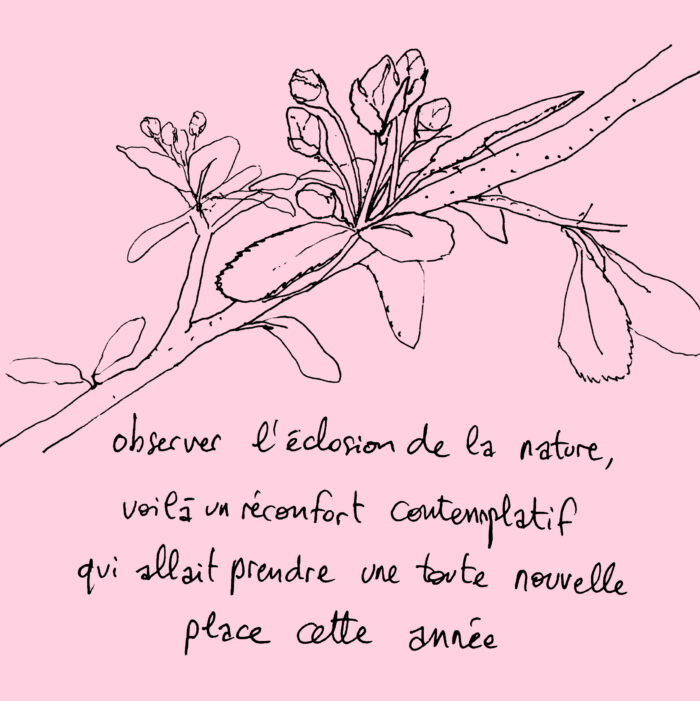 observer l'éclosion de la nature,
voilà un réconfort contemplatif
qui allait prendre une toute nouvelle
place cette année